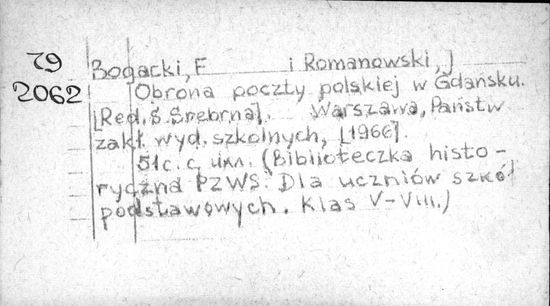 79
2062
Bogacki, F i Romanowski, J
Obrona poczty polskiej w Gdańsku.
[Red. S. Srebrna]. Warszawa, Państw
zakł. wyd. szkolnych, [1966].
51 c. с илл. (Biblioteczka histo-
ryczna PZWS. Dla uczniów szkół
podstawowych. Klas V-VIII.)